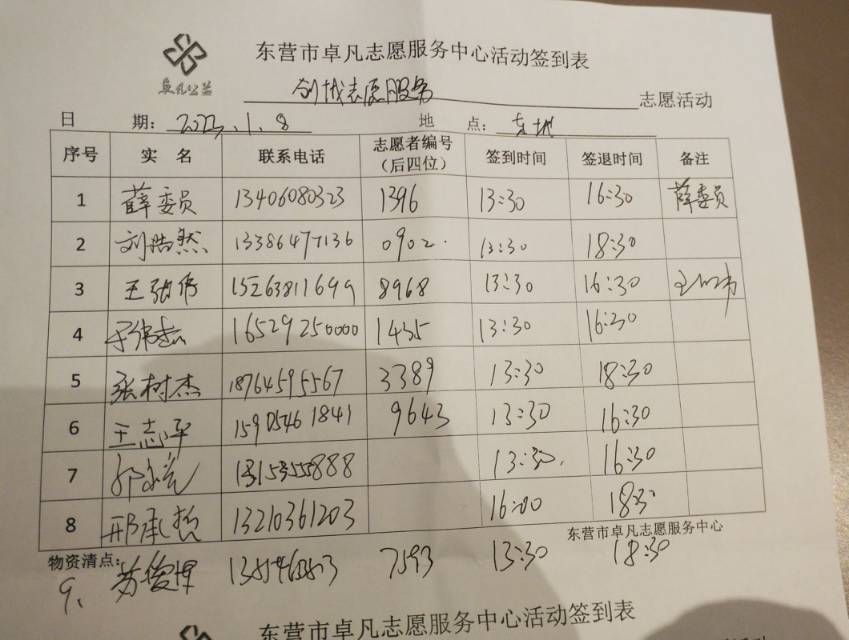 东营市卓凡志愿服务中心活动签到表
卓凡公益
创城志愿服务 志愿活动
日 期: 2023.1.8 地 点: 东城
序号 实 名 联系电话 志愿者编号（后四位） 签到时间 签退时间 备注
1 薛委员 13406080323 1396 13:30 16:30 薛委员
2 刘浩然 13386477136 0902. 13:30 18:30
3 王张伟 15263811699 8968 13:30 16:30
4 16529250000 1435 13:30 16:30
5 张树杰 18764595567 3389 13:30 18:30
6 王志平 15905461841 9643 13:30 16:30
7 13153555888 13:30. 16:30
8 邢承哲 13210361203 16:00 18:30
东营市卓凡志愿服务中心
物资清点:
9、 苏俊博 7593 13:30 18:30
东营市卓凡志愿服务中心活动签到表